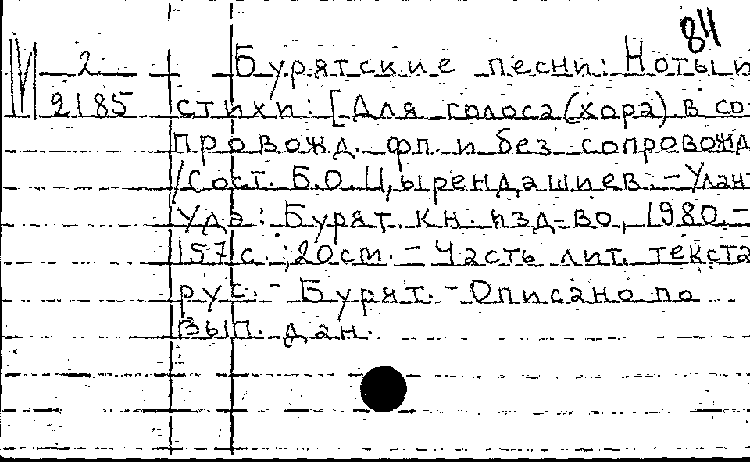 84
М 2 Бурятские песни: Ноты и
2185 стихи: [Для голоса (хора) в со-
провожд. фп. и без сопровожд
/Сост. Б.О. Цырендашиев. – Улан-
Удэ: Бурят. кн. изд-во, 1980. –
157 с.; 20 см. – Часть лит. текста
рус. – Бурят. – Описано по
вып. дан.